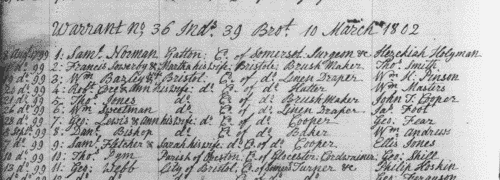 Warrant No. 36 Ind. 39 Brot. 10 March 1802
1: Saml. Norman Yatton Co. of Somerset Surgeon & Hezekiah Holyman
d. 99 2: Francis & Martha his wife Bristol Brush Maker Thos. Smith
d. 99 3: Wm. Bristol Co. of d. Linen Draper Wm. K. Pinson
d. 99 4: Robt. & Ann his wife d. Co. of d. Hatter Wm. Masters
d. 99 5: Thos. Jones d. Co. of d. Brush Maker John T. Cooper
d. 99 6: Wm. d. Co. of d. Linen Draper Jos. Foot
d. 99 7: Geo. Lewis & Ann his wife d. Co. of d. Cooper Geo. Fear
Sept. 99 8: Danl. Bishop d. Co. of d. Baker Wm. Andrews
d. 99 9: Saml. Fletcher & Sarah his wife d. Co. of d. Cooper Ellis Jones
10 d. 99 10: Thos. Pym Parish of Co. of Glocester Cordwainer Geo. Shill
13 d. 99 11: Geo. Webb City of Bristol, Co. of Turner &c. Philip Hoskin
Geo. Ferguson